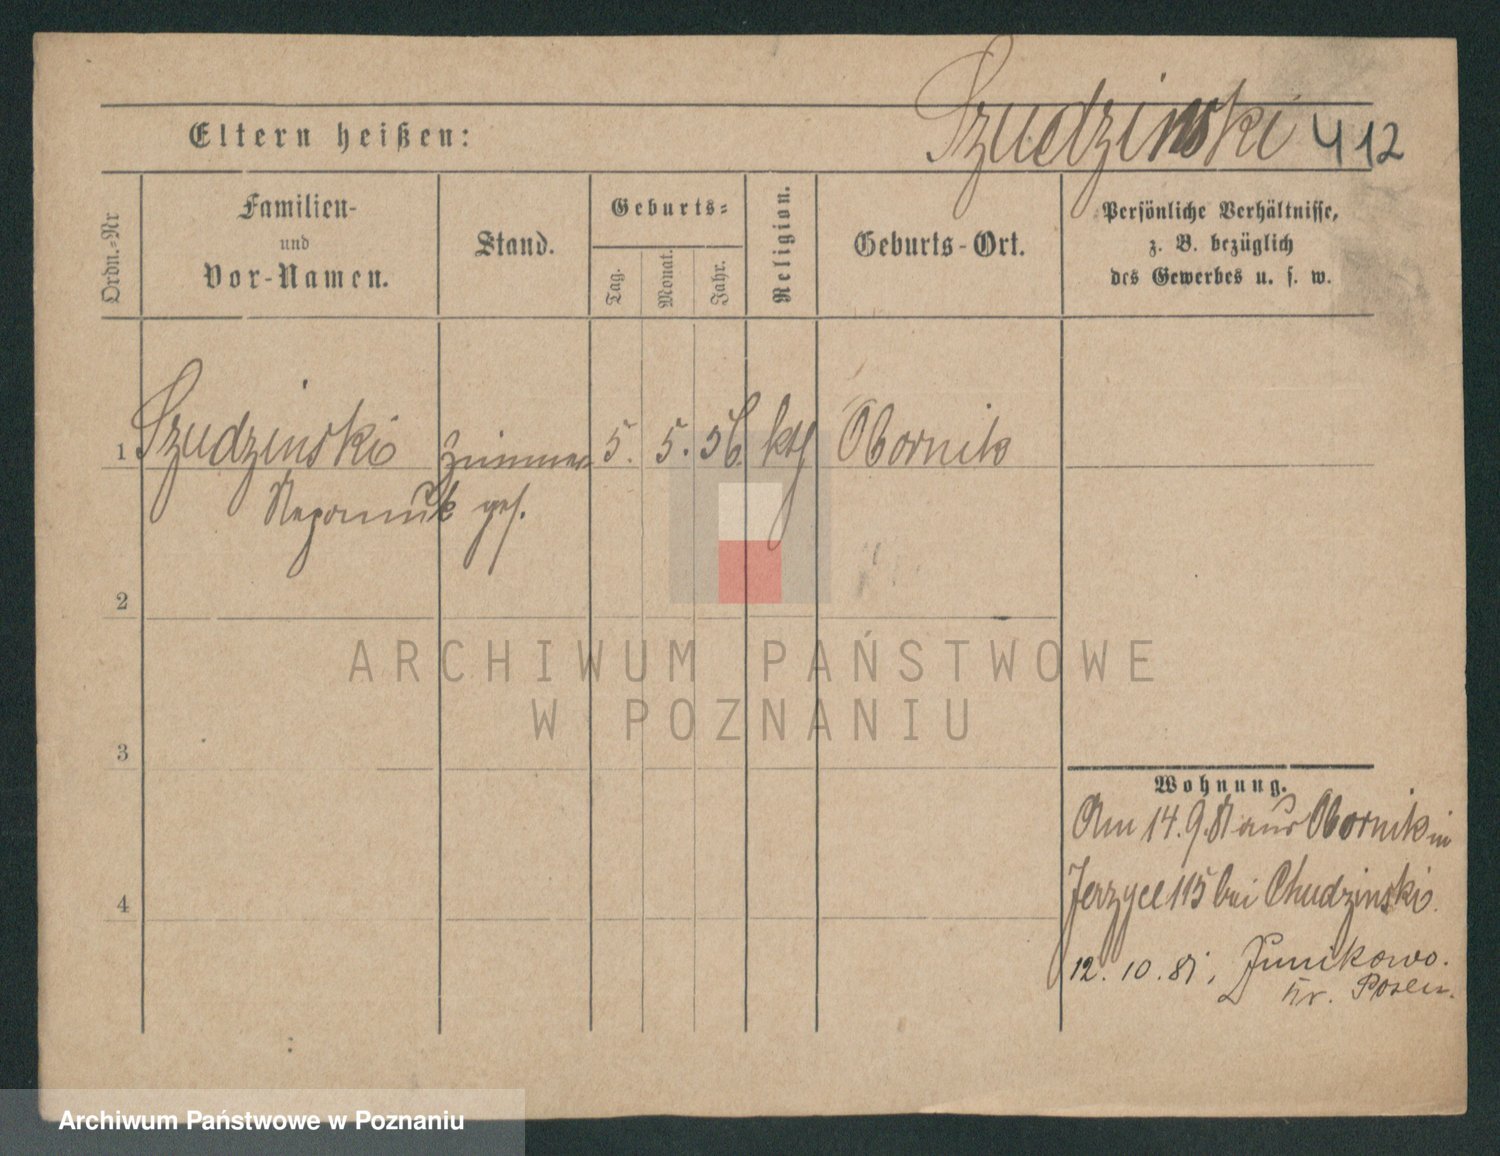 Szudzinski 412
Eltern heißen:
Ordn.-Nr
Familien-
und
Vor-Namen.
Stand.
Geburts-
Tag.
Monat.
Jahr.
Religion.
Geburts-Ort.
Persönliche Verhältnisse,
z. B. bezüglich
des Gewerbes u. s. w.
1 Szudzinski Zimmer 5. 5. 56. kth Obornik
Nepomuk ges.
2
3
4
Wohnung.
Am 14. 9. 81 aus Obornik in
Jerzyce 115 bei Chudzinski.
12. 10. 81, Junikowo.
Kr. Posen.
ARCHIWUM PAŃSTWOWE
W POZNANIU
Archiwum Państwowe w Poznaniu